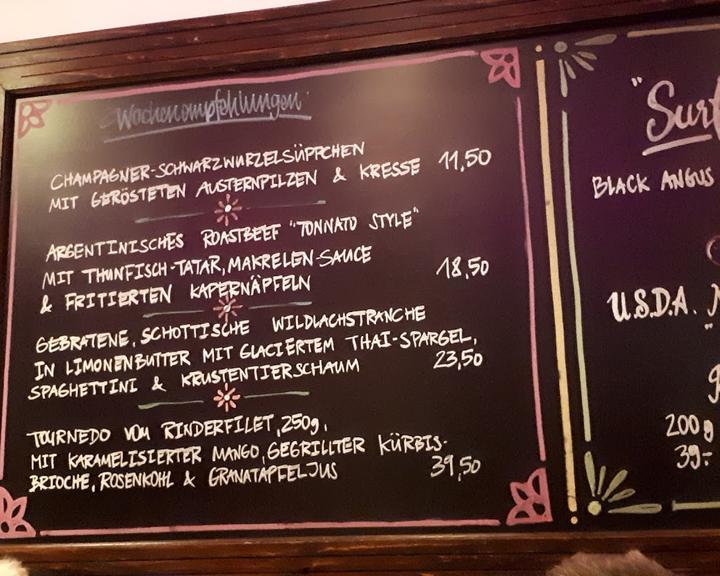 Wochenempfehlungen
CHAMPAGNER-SCHWARZWURZELSÜPPCHEN
MIT GERÖSTETEN AUSTERNPILZEN & KRESSE 11,50
ARGENTINISCHES ROASTBEEF "TONNATO STYLE"
MIT THUNFISCH-TATAR, MAKRELEN-SAUCE
& FRITIERTEN KAPERNÄPFELN 18,50
GEBRATENE, SCHOTTISCHE WILDLACHSTRANCHE
IN LIMONENBUTTER MIT GLACIERTEM THAI-SPARGEL,
SPAGHETTINI & KRUSTENTIERSCHAUM 23,50
TOURNEDO VOM RINDERFILET, 250g,
MIT KARAMELISIERTER MANGO, GEGRILLTER KÜRBIS-
BRIOCHE, ROSENKOHL & GRANATAPFELJUS 39,50
"Surf
BLACK ANGUS
U.S.D.A.
200g
39.-